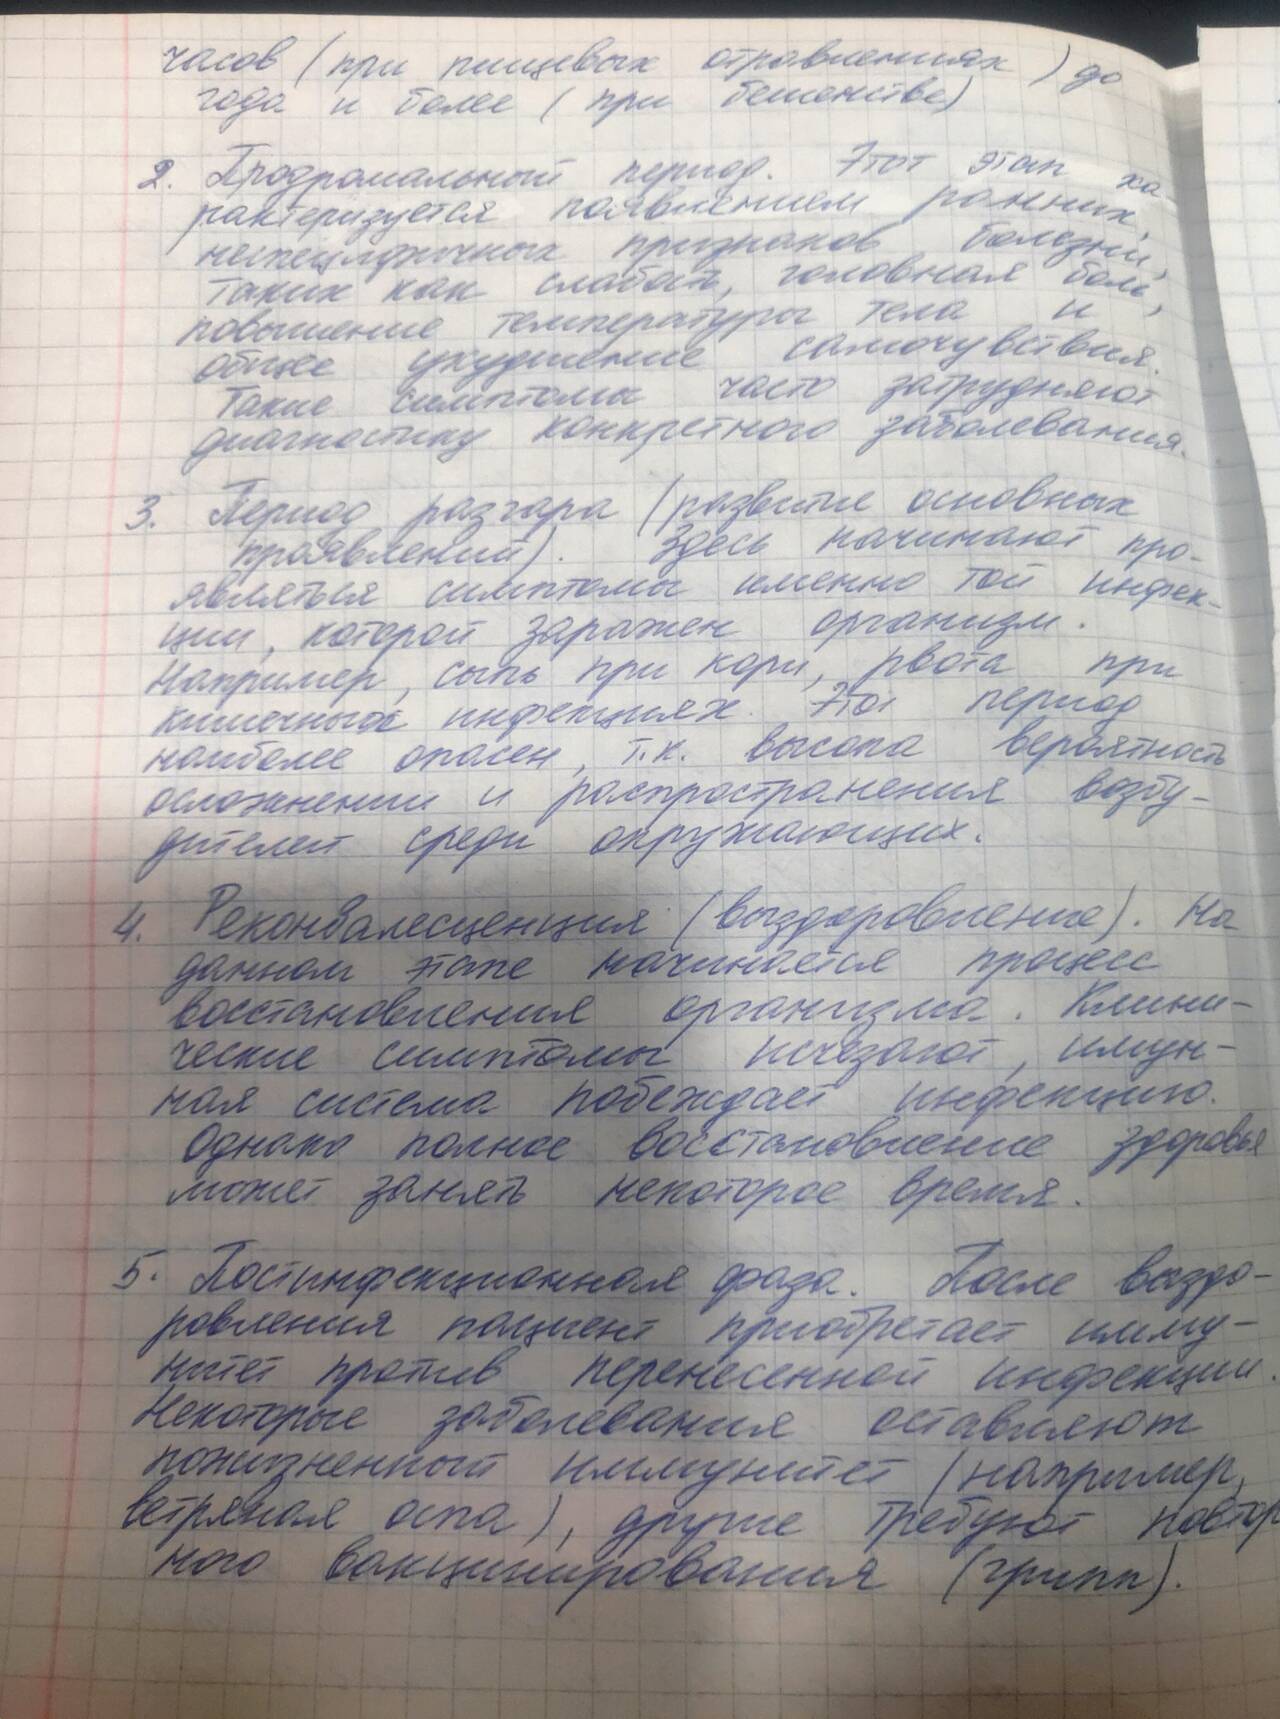 часов (при пищевых отравлениях) до
года и более (при бешенстве)
2. Продромальный период. Этот этап ха-
рактеризуется появлением ранних,
неспецифичных признаков болезни,
таких как слабость, головная боль,
повышение температуры тела и
общее ухудшение самочувствия.
Такие симптомы часто затрудняют
диагностику конкретного заболевания.
3. Период разгара (развитие основных
проявлений). Здесь начинают про-
являться симптомы именно той инфек-
ции, которой заражен организм.
Например, сыпь при кори, рвота при
кишечных инфекциях. Этот период
наиболее опасен, т.к. высока вероятность
осложнений и распространения возбу-
дителей среди окружающих.
4. Реконвалесценция (выздоровление). На
данном этапе начинается процесс
восстановления организма. Клини-
ческие симптомы исчезают, имун-
ная система побеждает инфекцию.
Однако полное восстановление здоровья
может занять некоторое время.
5. Постинфекционная фаза. После выздо-
ровления пациент приобретает имму-
нитет против перенесенной инфекции.
Некоторые заболевания оставляют
пожизненный иммунитет (например,
ветряная оспа), другие требуют повтор
ного вакцинирования (грипп).